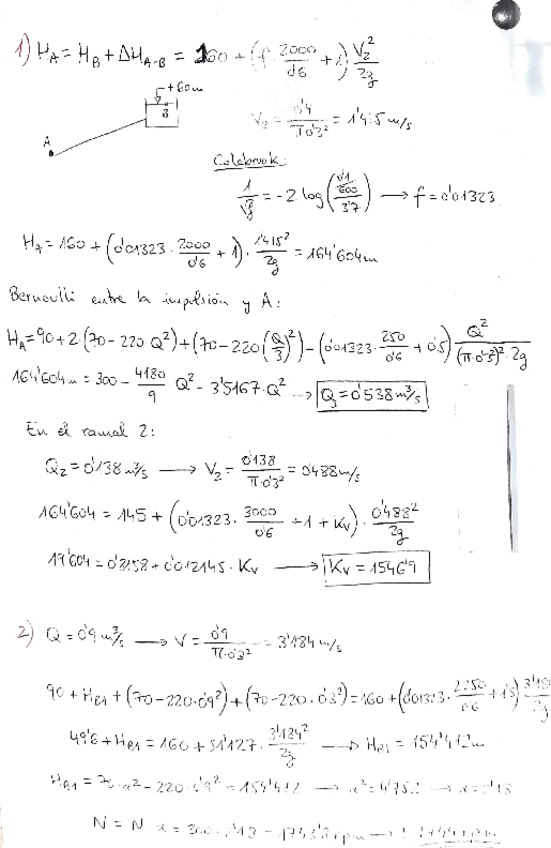 1) H_A = H_B + ΔH_A-B = 160 + (f · 2000/0'6 + 1) V_2²/2g
+60m
B
A
V_2 = 0'4/π0'3² = 1'415 m/s
Colebrook:
1/√f = -2 log((0'1/600)/3'7) → f = 0'01323
H_A = 160 + (0'01323 · 2000/0'6 + 1) · 1'415²/2g = 164'604m
Bernoulli entre la impulsión y A:
H_A = 90 + 2·(70 - 220 Q²) + (70 - 220 (Q/3)²) - (0'01323 · 250/0'6 + 0'5) Q²/(π·0'3²)²·2g
164'604m = 300 - 4180/9 Q² - 3'5167·Q² → Q = 0'538 m³/s
En el ramal 2:
Q_2 = 0'138 m³/s → V_2 = 0'138/π·0'3² = 0'488 m/s
164'604 = 145 + (0'01323 · 3000/0'6 + 1 + K_V) · 0'488²/2g
19'604 = 0'8158 + 0'012145 · K_V → K_V = 1546'9
2) Q = 0'9 m³/s → V = 0'9/π·0'3² = 3'184 m/s
90 + H_B1 + (70 - 220·0'9²) + (70 - 220·0'3²) = 160 + (0'01323 · 2250/0'6 + 1'5) 3'18 /2g
49'6 + H_B1 = 160 + 51'127 · 3'184²/2g → H_B1 = 154'412m
H_B1 = 70·α² - 220·0'9² = 154'412 → α² = 4'752 → α = 2'18
N = N α = 800 · 2'18 = 1743'8 rpm → 1744 rpm